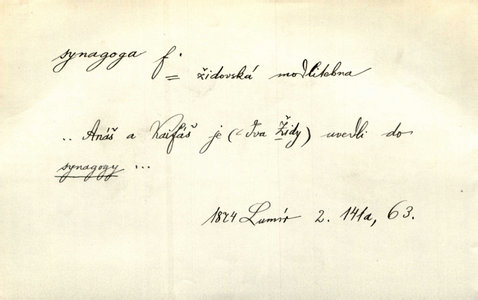 synagoga f.
= židovská modlitebna
.. Anáš a Kaifáš je (= dva Židy) uvedli do
synagogy ...
1874 Lumír 2. 141a, 63.